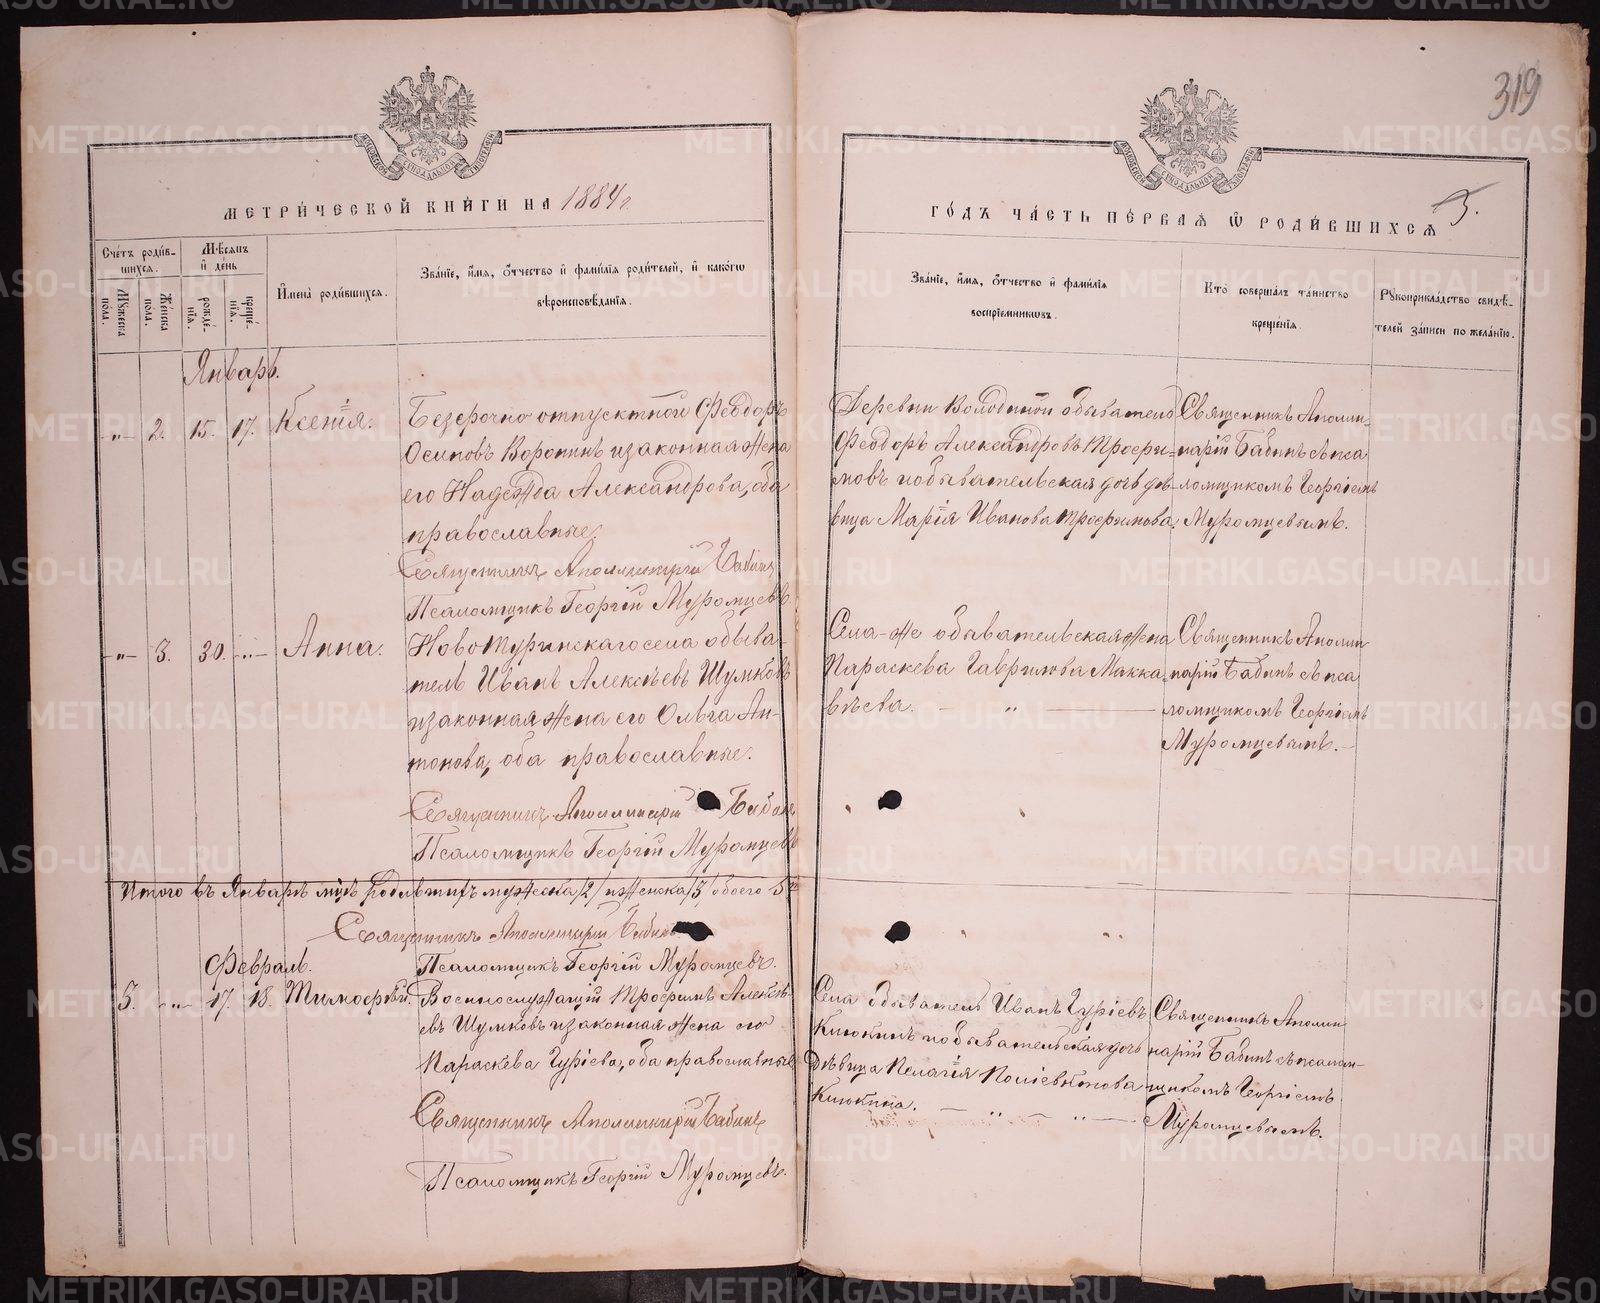 319
МОСКОВСКОЙ СѴНОДАЛЬНОЙ ТИПОГРАФІИ
МОСКОВСКОЙ СѴНОДАЛЬНОЙ ТИПОГРАФІИ
МЕТРИ́ЧЕСКОЙ КНИ́ГИ НА 1884 г.
ГО́ДЪ ЧА́СТЬ ПЕ́РВАѦ Ѡ РОДИ́ВШИХСѦ 3.
Сче́тъ роди́в-
шихсѧ.
Мѣсѧцъ
и҆ день
Мꙋ́жеска
пола.
Же́нска
пола.
рожде́-
нїѧ.
креще́-
нїѧ.
И҆мена̀ роди́вшихсѧ.
Зва́нїе, и҆́мѧ, ѻ҆́тчество и҆ фамі́лїѧ роди́телей, и҆ како́гѡ
вѣроисповѣ́данїѧ.
Зва́нїе, и҆́мѧ, ѻ҆́тчество и҆ фамі́лїѧ
воспрїе́мникѡвъ.
Кто̀ соверша́лъ та́инство
креще́нїѧ.
Рꙋкоприкла́дство свидѣ́-
телей за́писи по жела́нїю.
Январь.
-„- 2. 15. 17. Ксенія.
Безсрочно отпускной Феодоръ
Осиповъ Воронинъ и законная жена
его Надежда Александрова, оба
православные.
Священникъ Аполлинарій Бабинъ
Псаломщикъ Георгій Муромцевъ
Деревни Володиной обыватель
Феодоръ Александровъ Трофи-
мовъ и обывательская дочь дѣ-
вица Марія Иванова Трофимова.
Священникъ Аполли-
нарій Бабинъ съ пса
ломщикомъ Георгіемъ
Муромцевымъ.
-„- 3. 30. -„- Анна.
Ново Туринскаго села обыва-
тель Иванъ Алексѣевъ Шумковъ
и законная жена его Ольга Ан-
тонова, оба православные.
Священникъ Аполлинарій Бабинъ
Псаломщикъ Георгій Муромцевъ
Села-же обывательская жена
Параскева Гаврилова Макка-
вѣева. - „ -
Священникъ Аполли-
нарій Бабинъ съ пса
ломщикомъ Георгіемъ
Муромцевымъ.-
Итого въ Январѣ мцѣ родившихъ мужеска /2/ и женска /3/ обоего 5
Священникъ Аполлинарій Бабинъ
Псаломщикъ Георгій Муромцевъ.
Февраль.
3. -„- 17. 18. Тимофей.
Военнослужащій Трофимъ Алексѣ-
евъ Шумковъ и законная жена его
Параскева Гуріева, оба православные
Священникъ Аполлинарій Бабинъ
Псаломщикъ Георгій Муромцевъ.
Села обыватель Иванъ Гуріевъ
Клюкинъ и обывательская дочь
дѣвица Пелагія Поліевктова
Клюкина. - „ - „ -
Священникъ Аполли
нарій Бабинъ съ псалом-
щикомъ Георгіемъ
Муромцевымъ.
METRIKI.GASO-URAL.RU